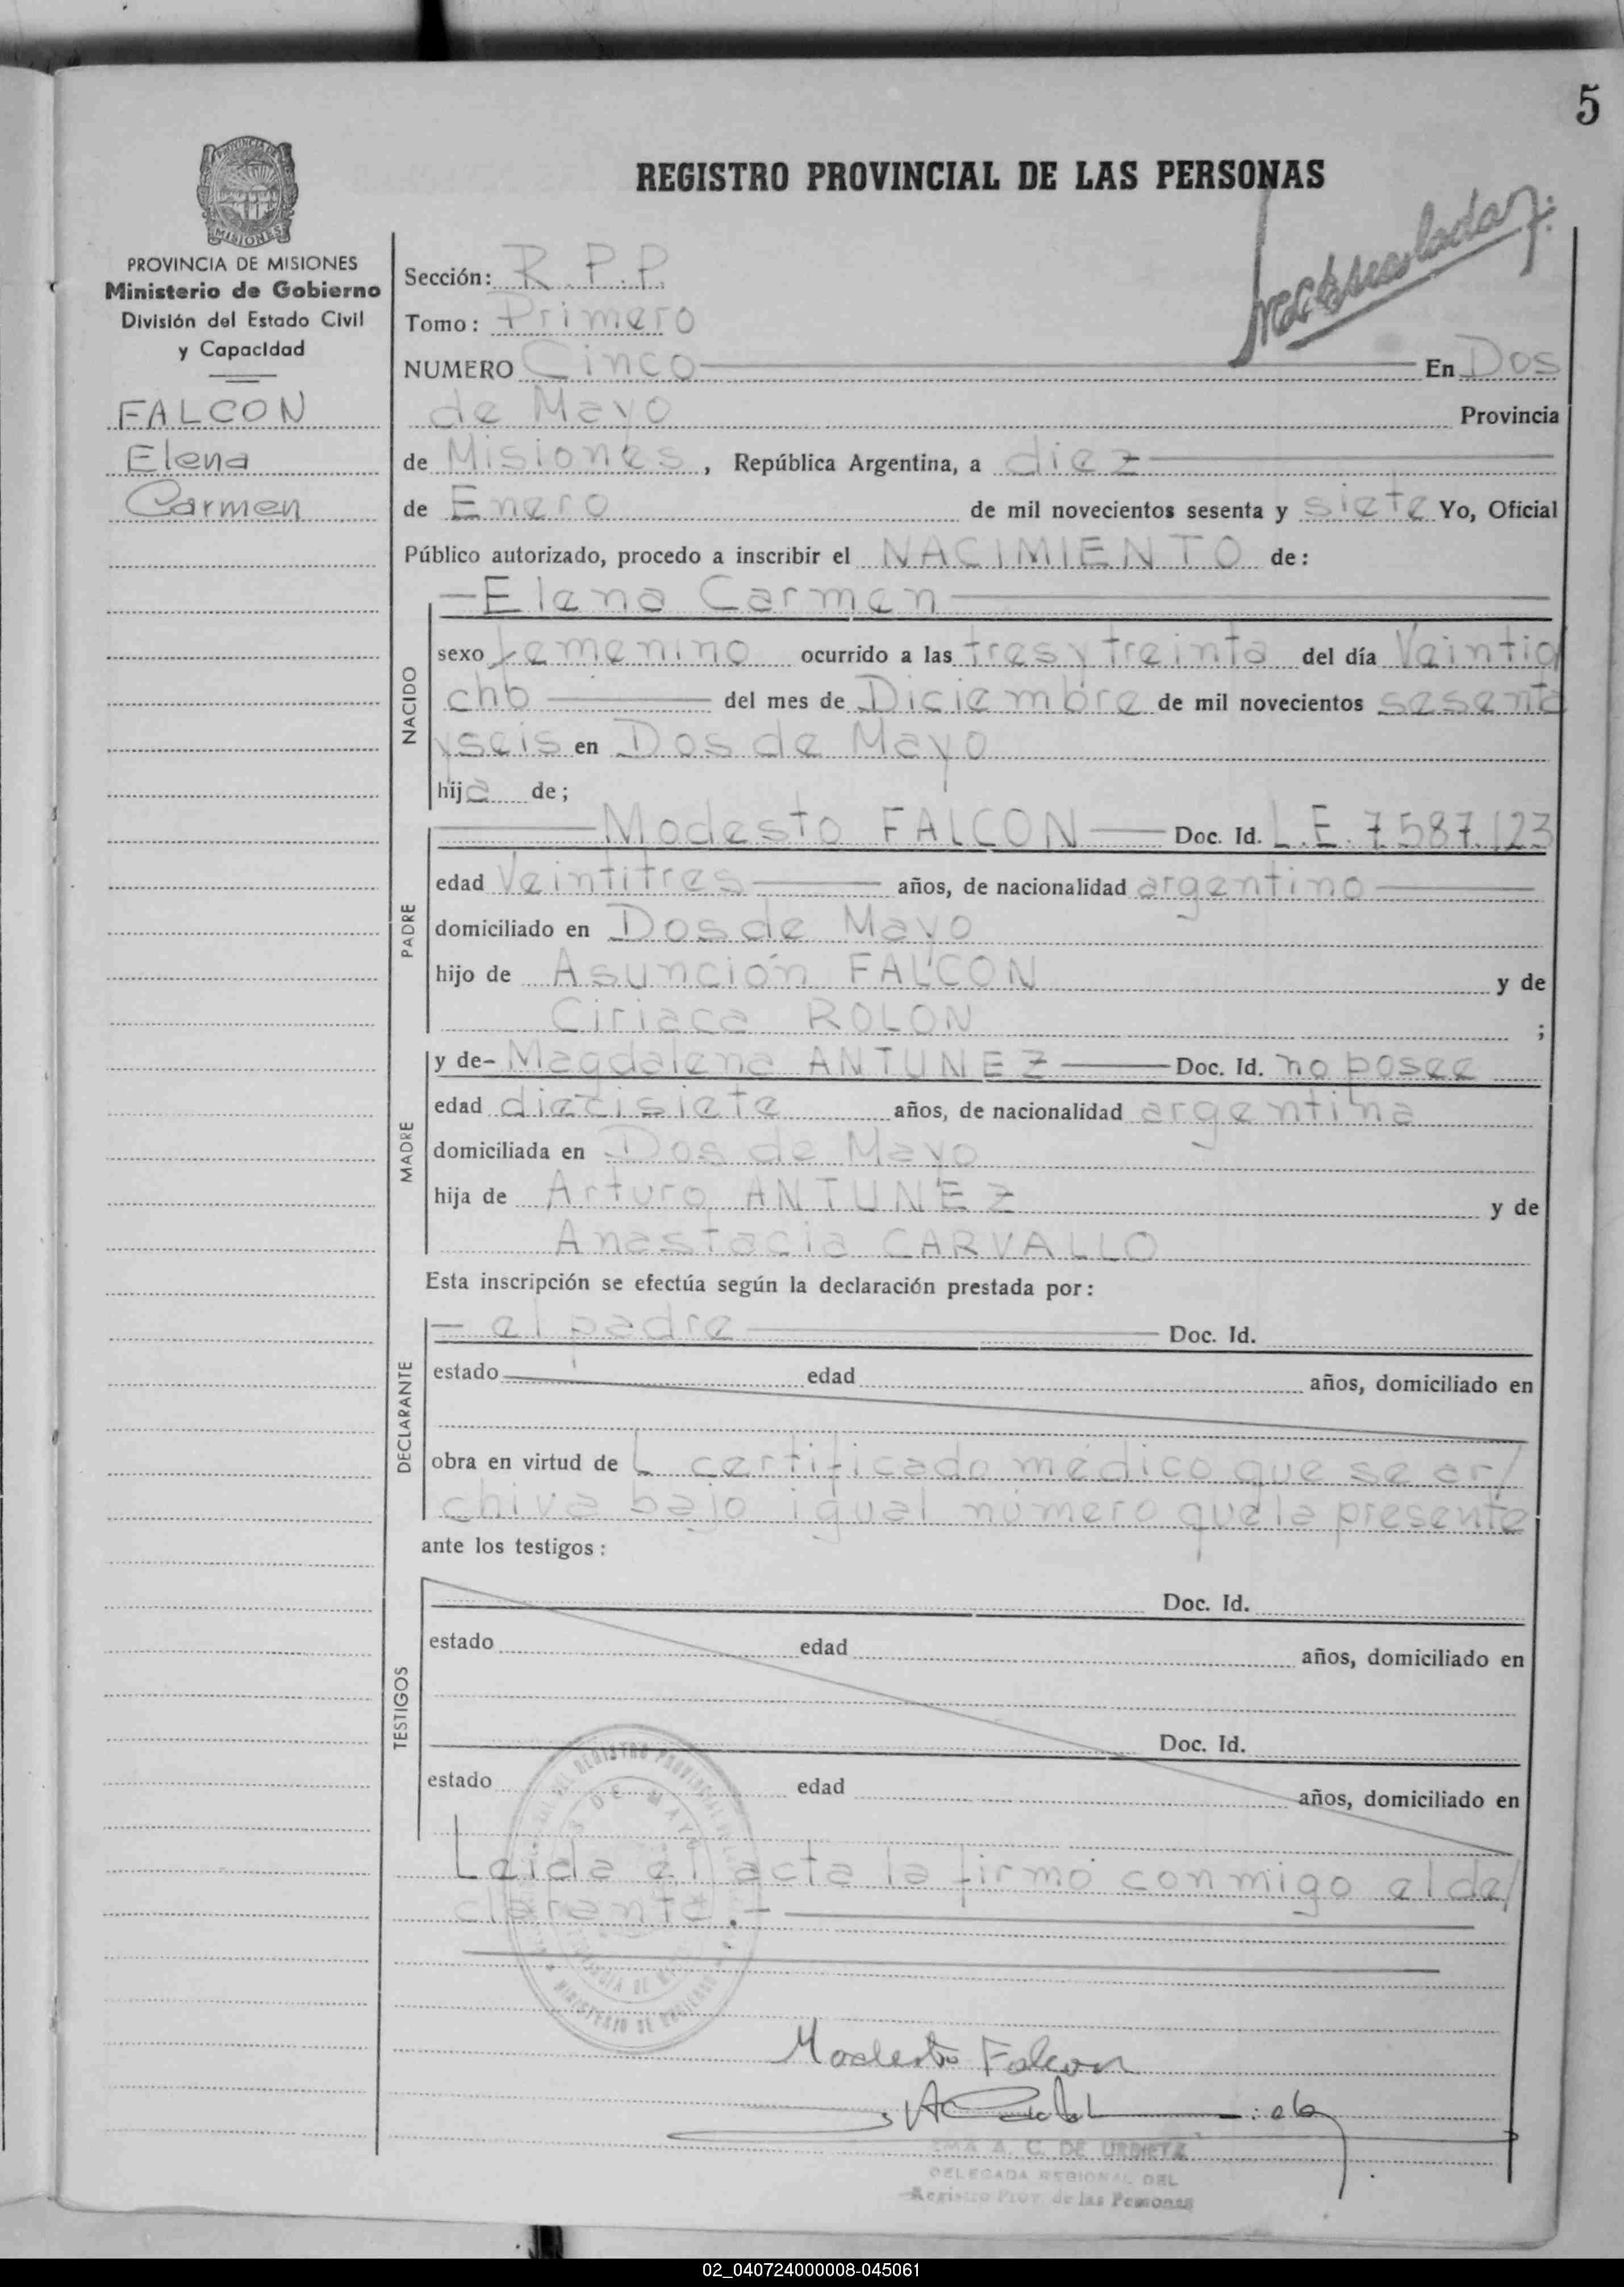 5
REGISTRO PROVINCIAL DE LAS PERSONAS
MISIONES
PROVINCIA DE MISIONES
Ministerio de Gobierno
División del Estado Civil
y Capacidad
FALCON
Elena
Carmen
Sección: R.P.P.
Tomo: Primero
NUMERO Cinco En Dos
de Mayo Provincia
de Misiones, República Argentina, a diez
de Enero de mil novecientos sesenta y siete Yo, Oficial
Público autorizado, procedo a inscribir el NACIMIENTO de:
NACIDO
Elena Carmen
sexo femenino ocurrido a las tres y treinta del día Veintio
cho del mes de Diciembre de mil novecientos sesenta
y seis en Dos de Mayo
hija de;
PADRE
Modesto FALCON Doc. Id. L.E. 7.587.123
edad Veintitres años, de nacionalidad argentino
domiciliado en Dos de Mayo
hijo de Asunción FALCON y de
Ciriaca ROLON ;
MADRE
y de- Magdalena ANTUNEZ Doc. Id. no posee
edad diecisiete años, de nacionalidad argentina
domiciliada en Dos de Mayo
hija de Arturo ANTUNEZ y de
Anastacia CARVALLO
Esta inscripción se efectúa según la declaración prestada por:
DECLARANTE
el padre Doc. Id.
estado edad años, domiciliado en
obra en virtud de L certificado médico que se ar/
chiva bajo igual número que la presente
ante los testigos:
TESTIGOS
Doc. Id.
estado edad años, domiciliado en
Doc. Id.
estado edad años, domiciliado en
Leida el acta la firmó conmigo el de/
clarante.-
Modesto Falcon
A. C. DE URDIETA
DELEGADA REGIONAL DEL
Registro Prov. de las Personas
02_040724000008-045061